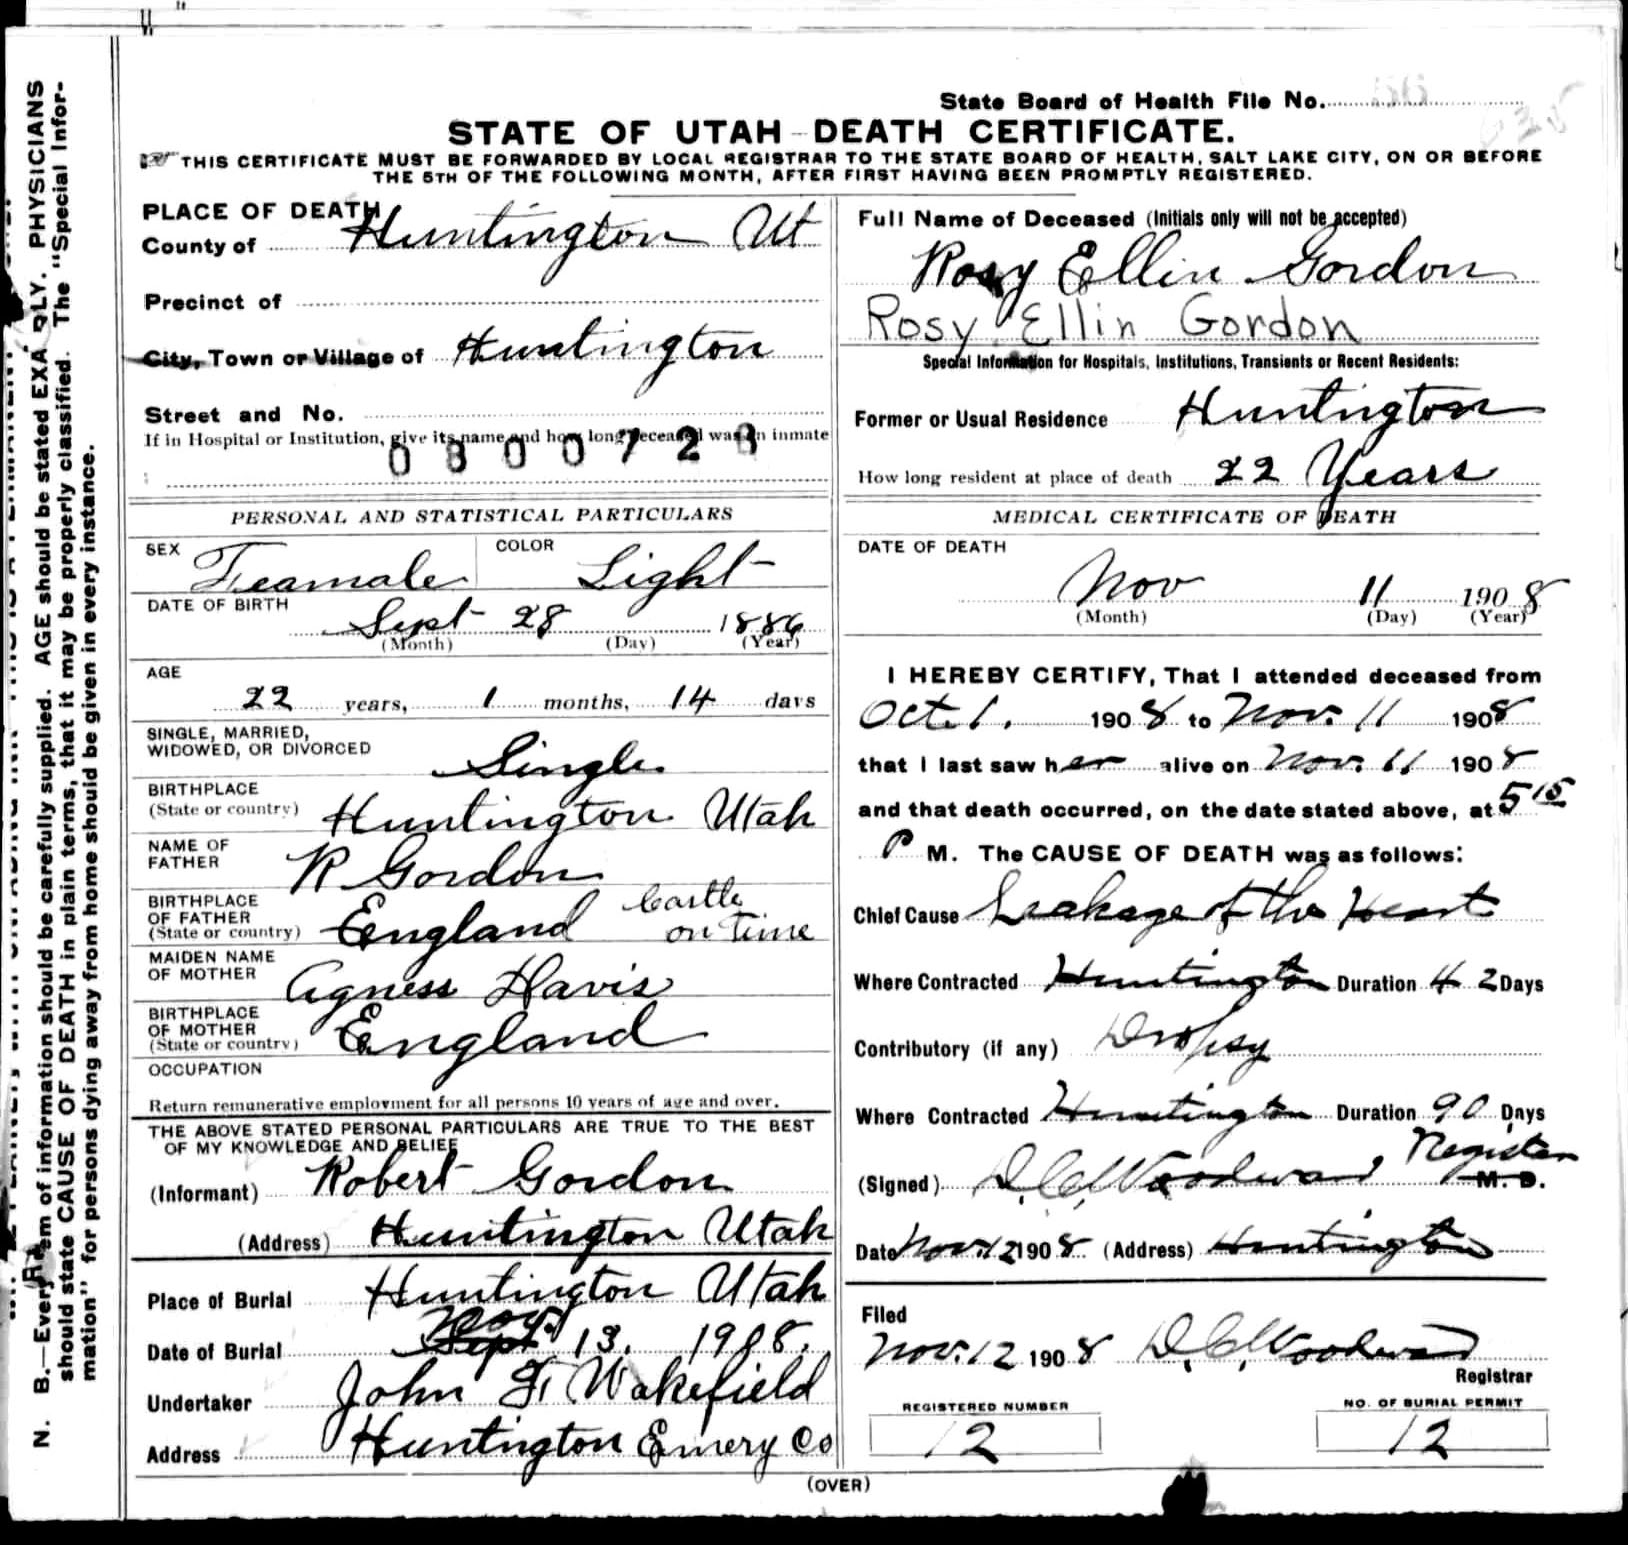 State Board of Health File No. 56
635
STATE OF UTAH - DEATH CERTIFICATE.
THIS CERTIFICATE MUST BE FORWARDED BY LOCAL REGISTRAR TO THE STATE BOARD OF HEALTH, SALT LAKE CITY, ON OR BEFORE
THE 5TH OF THE FOLLOWING MONTH, AFTER FIRST HAVING BEEN PROMPTLY REGISTERED.
PLACE OF DEATH
County of Huntington Ut
Precinct of
City, Town or Village of Huntington
Street and No.
If in Hospital or Institution, give its name and how long deceased was an inmate
0800728
PERSONAL AND STATISTICAL PARTICULARS
SEX Feamale COLOR Light
DATE OF BIRTH
Sept 28 1886
(Month) (Day) (Year)
AGE
22 years, 1 months, 14 days
SINGLE, MARRIED,
WIDOWED, OR DIVORCED
Single
BIRTHPLACE
(State or country) Huntington Utah
NAME OF
FATHER R Gordon
BIRTHPLACE
OF FATHER
(State or country) England Castle
on Time
MAIDEN NAME
OF MOTHER Agness Davis
BIRTHPLACE
OF MOTHER
(State or country) England
OCCUPATION
Return remunerative employment for all persons 10 years of age and over.
THE ABOVE STATED PERSONAL PARTICULARS ARE TRUE TO THE BEST
OF MY KNOWLEDGE AND BELIEF
(Informant) Robert Gordon
(Address) Huntington Utah
Place of Burial Huntington Utah
Nov.
Date of Burial Sept 13. 1908.
Undertaker John F. Wakefield
Address Huntington Emery Co
Full Name of Deceased (Initials only will not be accepted)
Rosy Ellin Gordon
Rosy Ellin Gordon
Special Information for Hospitals, Institutions, Transients or Recent Residents:
Former or Usual Residence Huntington
How long resident at place of death 22 Years
MEDICAL CERTIFICATE OF DEATH
DATE OF DEATH
Nov 11 1908
(Month) (Day) (Year)
I HEREBY CERTIFY, That I attended deceased from
Oct. 1. 1908 to Nov. 11 1908
that I last saw her alive on Nov. 11 1908
and that death occurred, on the date stated above, at 5 15
P M. The CAUSE OF DEATH was as follows:
Chief Cause Leakage of the Heart
Where Contracted Huntington Duration 42 Days
Contributory (if any) Dropsy
Where Contracted Huntington Duration 90 Days
Register
(Signed) D.C. Woodward M. D.
Date Nov. 12 1908 (Address) Huntington
Filed
Nov. 12 1908 D.C. Woodward
Registrar
REGISTERED NUMBER
12
NO. OF BURIAL PERMIT
12
(OVER)
N. B.—Every item of information should be carefully supplied. AGE should be stated EXACTLY. PHYSICIANS
should state CAUSE OF DEATH in plain terms, that it may be properly classified. The "Special Infor-
mation" for persons dying away from home should be given in every instance.